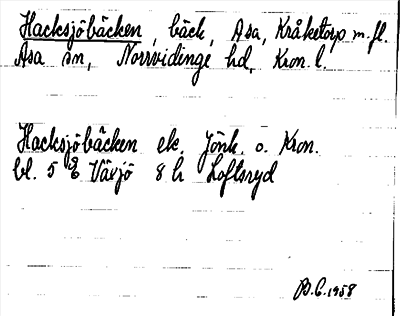 Hacksjöbäcken, bäck, Asa, Kråketorp m.fl.
Asa sn, Norrvidinge hd, Kron. l.
Hacksjöbäcken ek. Jönk. o. Kron.
bl. 5 E Växjö 8 h Loftsryd
B.C. 1958